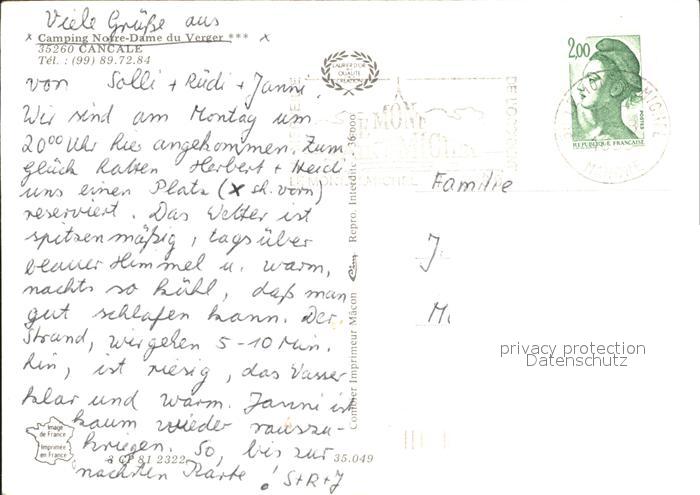 Viele Grüße aus
x Camping Notre-Dame du Verger *** x
35260 CANCALE
Tél. : (99) 89.72.84
von Solli + Rüdi + Janni.
Wir sind am Montag um
20⁰⁰ Uhr hier angekommen. Zum
Glück hatten Herbert + Heidi
uns einen Platz (x sh. vorn)
reserviert. Das Wetter ist
spitzenmäßig, tagsüber
blauer Himmel u. warm,
nachts so kühl, daß man
gut schlafen kann. Der
Strand, wir gehen 5-10 Min.
hin, ist riesig, das Wasser
klar und warm. Janni ist
kaum wieder rauszu-
kriegen. So, bis zur
nächsten Karte! S+R+J
Image
de France
Imprimée
en France
3 CP 81 2322
35.049
Combier Imprimeur Mâcon Cim Repro. Interdite - 36.000
LABEUR D'OR
QUALITE
CREATION
LE MONT
MICHEL
LE MONT ST MICHEL
2,00
POSTES
REPUBLIQUE FRANÇAISE
MANCHE
Familie
J
M.
privacy protection
Datenschutz